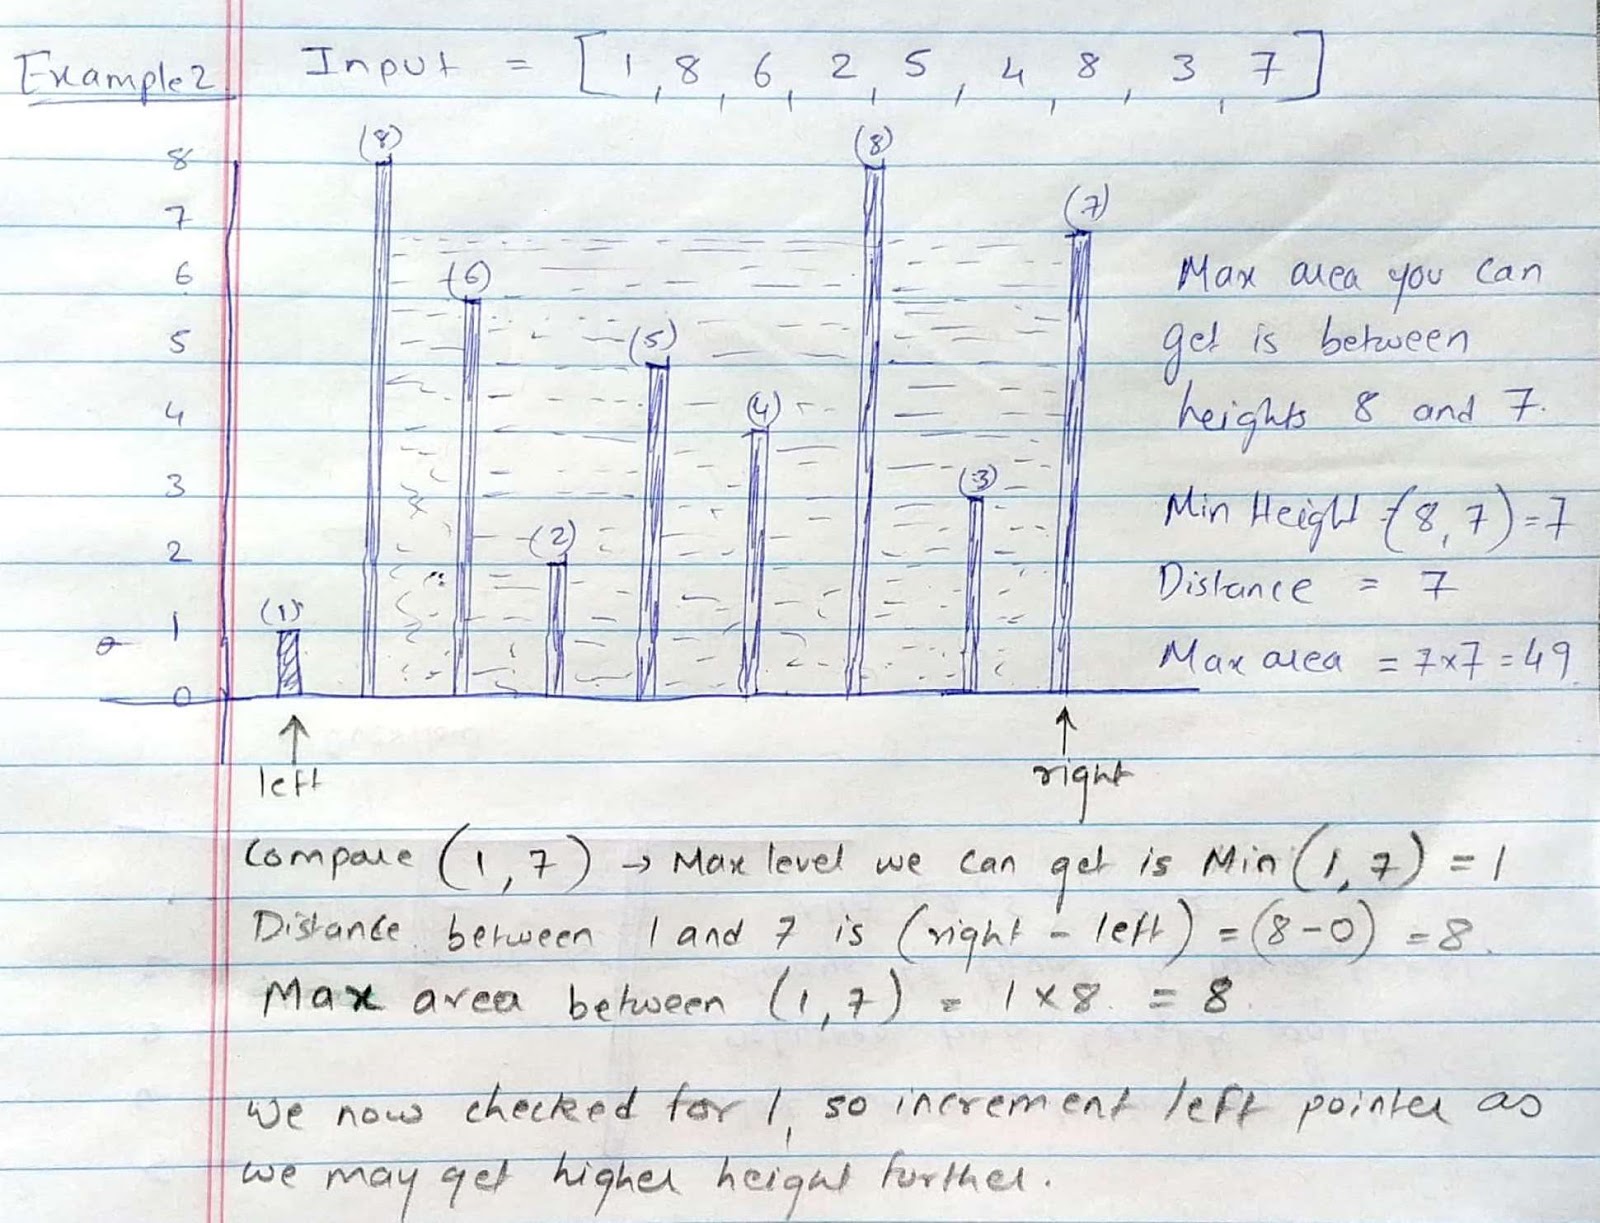 Example 2 Input = [1, 8, 6, 2, 5, 4, 8, 3, 7]
8 (8) (8)
7 (7)
6 (6)
Max area you can
5 (5)
get is between
4 (4)
heights 8 and 7.
3 (3)
Min Height - (8, 7) = 7
2 (2)
Distance = 7
1 (1)
Max area = 7x7 = 49
0
↑ ↑
left right
Compare (1, 7) → Max level we can get is Min (1, 7) = 1
Distance between 1 and 7 is (right - left) = (8-0) = 8.
Max area between (1, 7) = 1 x 8. = 8.
We now checked for 1, so increment left pointer as
we may get higher height further.